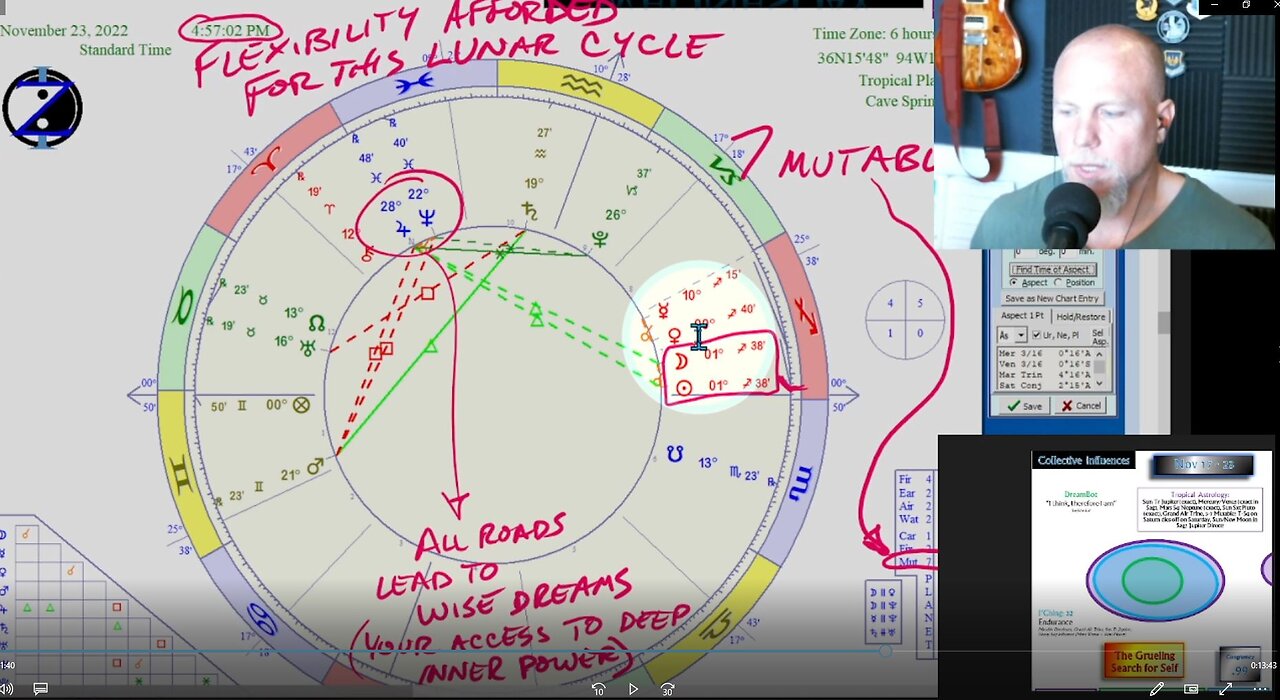 November 23, 2022
4:57:02 PM
Standard Time
FLEXIBILITY AFFORDED
FOR THIS LUNAR CYCLE
Time Zone: 6 hours
36N15'48" 94W1
Tropical Pla
Cave Sprin
7 MUTABL
ALL ROADS
LEAD TO
WISE DREAMS
(YOUR ACCESS TO DEEP
INNER POWER)
43'
17°
℞ 48' ♓ 28° ♃
℞ 40' ♓ 22° ♆
℞ 19' ♈ 12°
27' ♒ 19° ♄
37' ♑ 26° ♇
10°
28'
17°
18'
25°
38'
☿ 10° ♐ 15'
♀ ♐ 40'
☽ 01° ♐ 38'
☉ 01° ♐ 38'
℞ 23' ♉ 13° ☊
℞ 19' ♉ 16° ♅
00°
50'
50' ♊ 00° ⊗
℞ 23' ♊ 21° ♂
25°
38'
17°
18'
☋ 13° ♏ 23' ℞
00°
50'
17°
43'
4 5
1 0
deg. 0 min.
Find Time of Aspect
Aspect Position
Save as New Chart Entry
Aspect 1 Pt Hold/Restore
As Ur, Ne, Pl Sel Asp.
Mer 3/16 0°16'A
Ven 3/16 0°16'S
Mar Trin 4°16'A
Sat Conj 2°15'A
Save Cancel
Fir 4
Ear 2
Air 2
Wat 2
Car 1
Fix
Mut 7
P
L
A
N
E
T
Collective Influences
Nov 17 - 23
DreamBee
"I think, therefore I am"
Tropical Astrology:
I'Ching: 32
Endurance
The Grueling
Search for Self
Congruency
.99
1:40
0:13:43
10
30